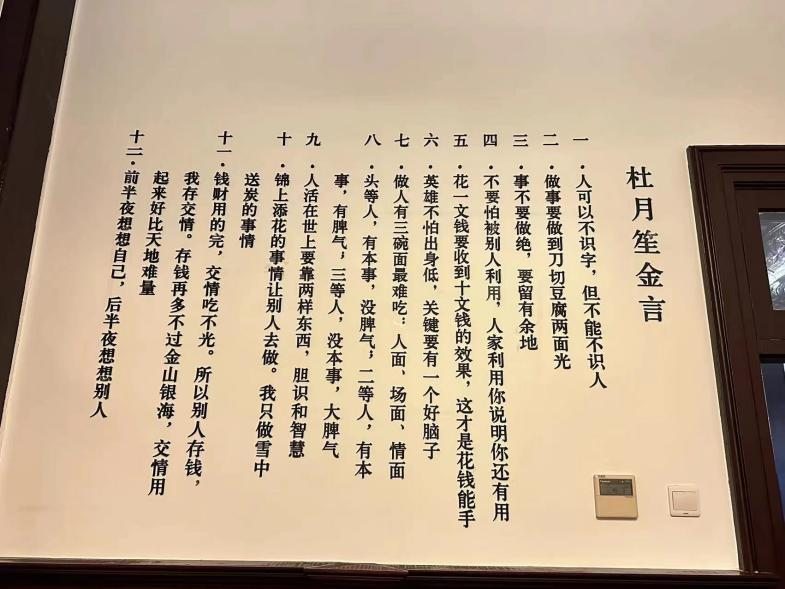 杜月笙金言
一·人可以不识字，但不能不识人
二·做事要做到刀切豆腐两面光
三·事不要做绝，要留有余地
四·不要怕被别人利用，人家利用你说明你还有用
五·花一文钱要收到十文钱的效果，这才是花钱能手
六·英雄不怕出身低，关键要有一个好脑子
七·做人有三碗面最难吃：人面、场面、情面
八·头等人，有本事，没脾气；二等人，有本
事，有脾气；三等人，没本事，大脾气
九·人活在世上要靠两样东西，胆识和智慧
十·锦上添花的事情让别人去做。我只做雪中
送炭的事情
十一·钱财用的完，交情吃不光。所以别人存钱，
我存交情。存钱再多不过金山银海，交情用
起来好比天地难量
十二·前半夜想想自己，后半夜想想别人